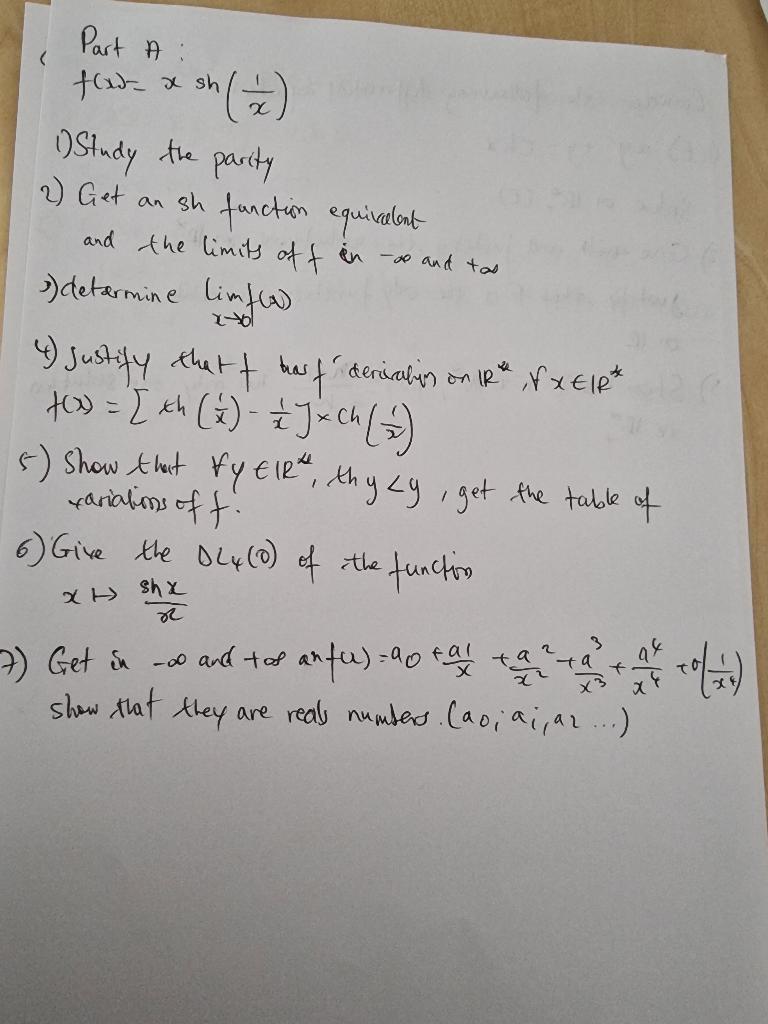 Part A :
f(x)= x sh(1/x)
1) Study the parity
2) Get an sh function equivalent
and the limits of f in -∞ and +∞
3) determine lim f(x)
x→0
4) Justify that f has f' derivation on IR*, ∀ x ∈ IR*
f(x) = [ th (1/x) - 1/x ] × ch (1/x)
5) Show that ∀y ∈ IR*, th y < y , get the table of
variations of f.
6) Give the DL4(0) of the function
x ↦ sh x / x
7) Get in -∞ and +∞ an f(x) = a0 + a1/x + a²/x² + a³/x³ + a⁴/x⁴ + o(1/x⁴)
show that they are reals numbers. (a0, a1, a2 ...)